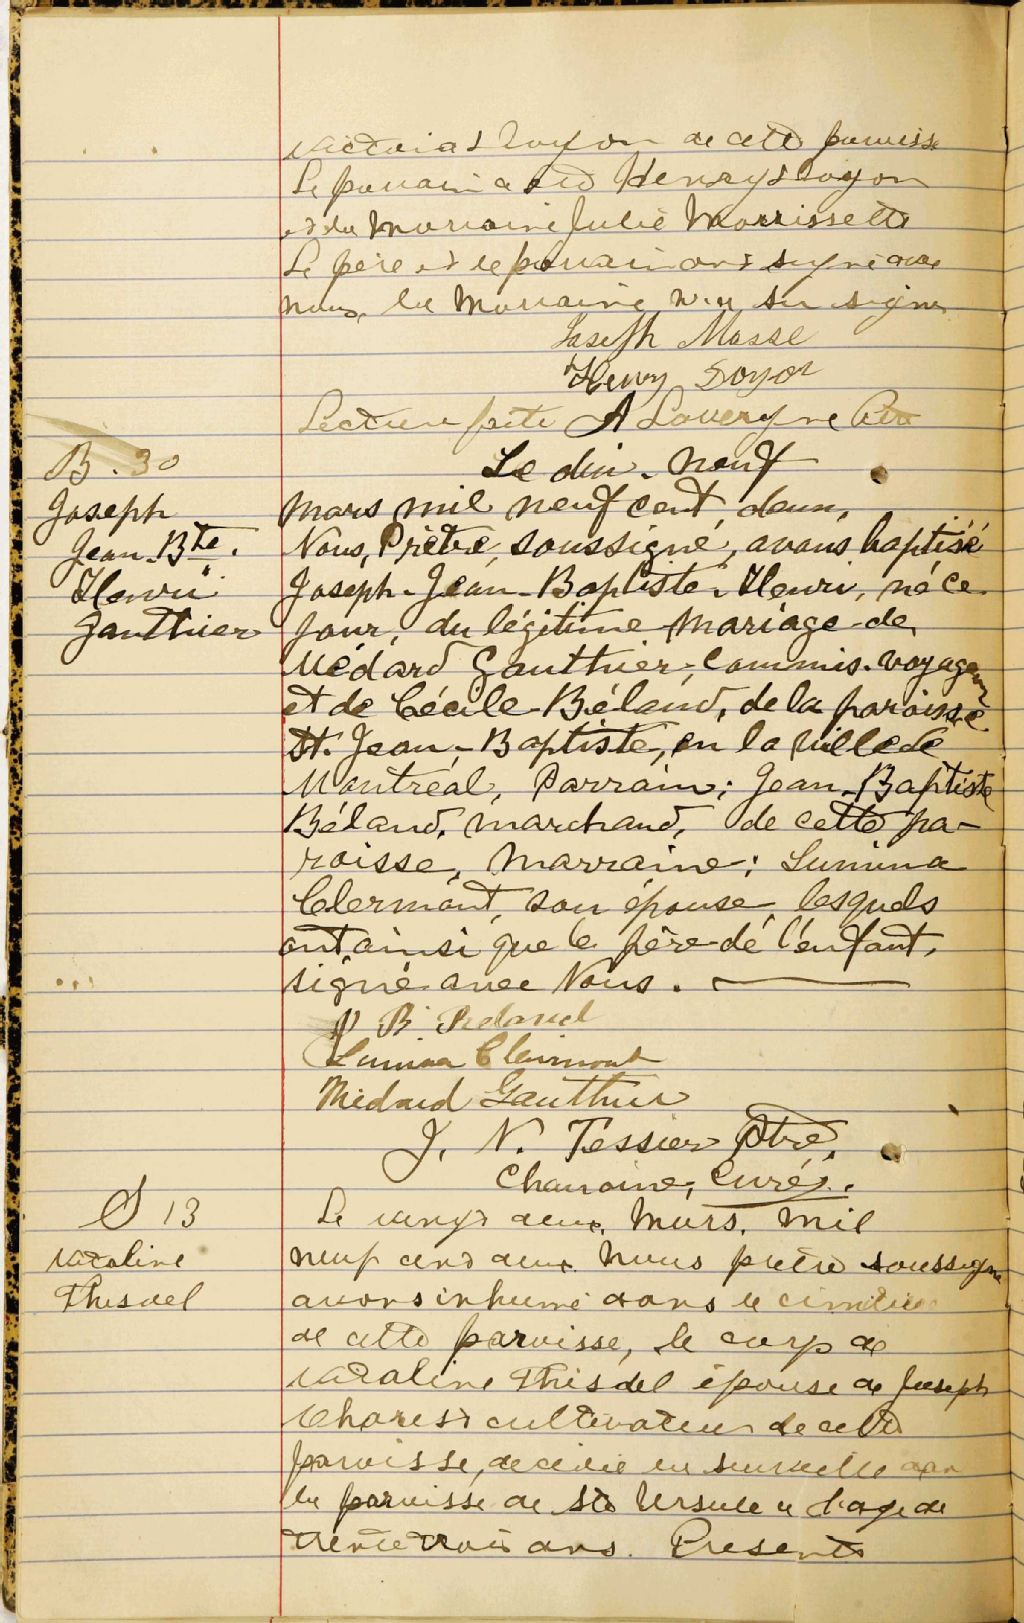 Victoria Doyon de cette paroisse
Le parrain a été Henry Doyon
et la Marraine Julie Morrissette
Le père et le parrain ont signé avec
nous, la Marraine n'a su signer
Joseph Masse
Henry Doyon
Lecture faite A Lavergne Ptre
B. 30
Joseph
Jean Bte.
Henri
Gauthier
Le dix-neuf
mars mil neuf cent deux,
Nous, Prêtre, soussigné, avons baptisé
Joseph-Jean-Baptiste-Henri, né ce
jour, du légitime mariage de
Médard Gauthier, Commis-voyageur
et de Cécile Béland, de la paroisse
St. Jean-Baptiste, en la ville de
Montréal, Parrain; Jean-Baptiste
Béland, marchand, de cette pa-
roisse, Marraine; Lumina
Clermont, son épouse, lesquels
ont ainsi que le père de l'enfant,
signé avec Nous.
J B Beland
Lumina Clermont
Médard Gauthier
J. N. Tessier Ptre,
Chanoine, Curé.
S 13
Nataline
Thisdel
Le vingt deux Mars, mil
neuf cent deux Nous prêtre soussigné
avons inhumé dans le cimetière
de cette paroisse, le corp de
Nataline Thisdel épouse de Joseph
Charest cultivateur de cette
paroisse, décédée la surveille dans
la paroisse de Ste Ursule a l'age de
trente trois ans. Presents